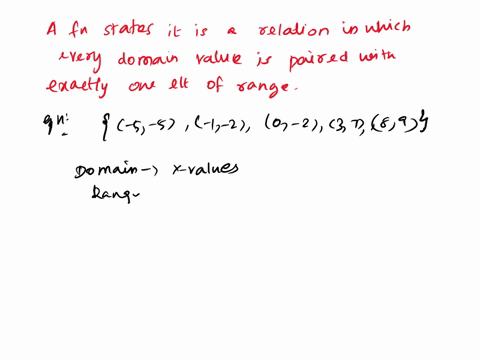 A fn states it is a relation in which
every domain value is paired with
exactly one elt of range.
gn: { (-5,-5) , (-1,-2), (0,-2), (3,7), (8,9) }
Domain → x-values
Rang